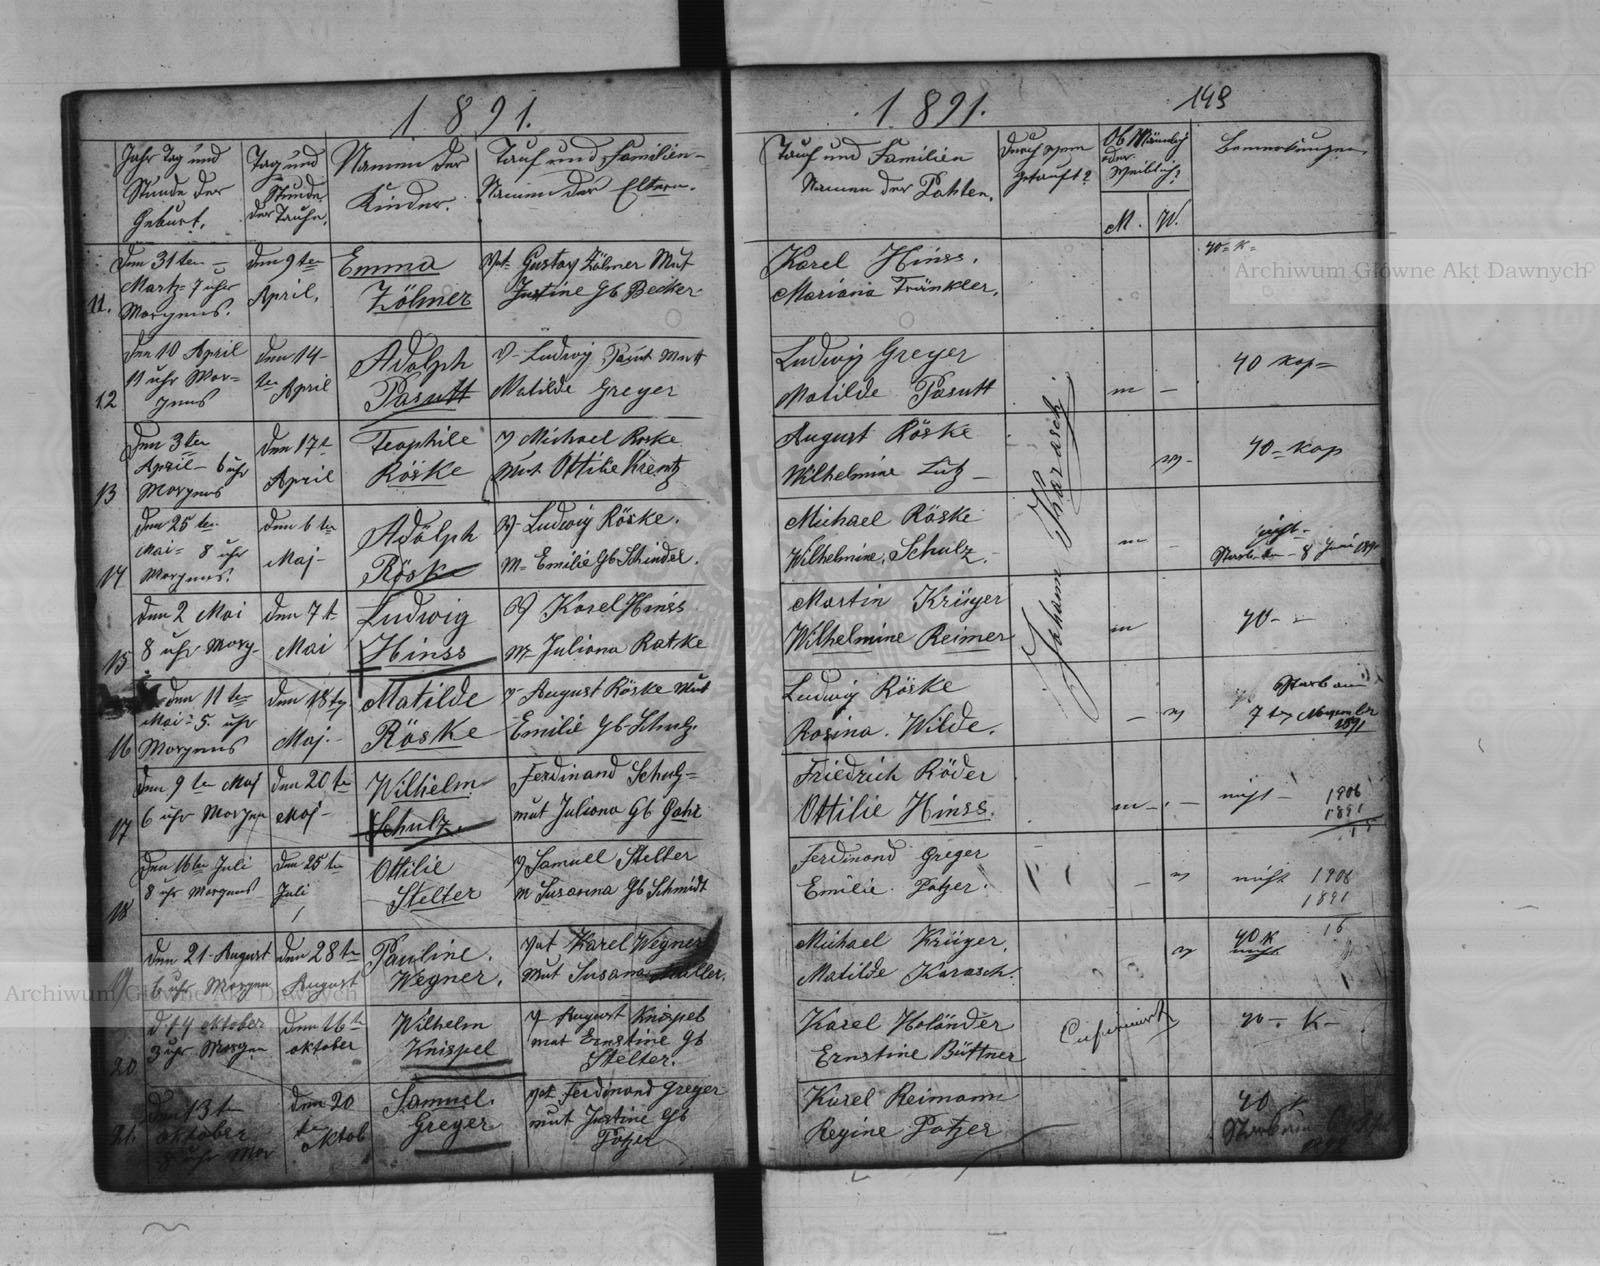 1891.
Jahr Tag und
Stunde der
Geburt.
Tag und
Stunde
der Taufe.
Namen der
Kinder.
Tauf und Familien-
Namen der Eltern.
11.
Den 31ten
Martz 7 uhr
Morgens.
den 9ten
April.
Emma
Zölmer
Vat. Gustav Zölmer Mut
Justine Gb Becker
12
Den 10 April
11 uhr Mor=
gens
den 14-
ten April
Adolph
Pasutt
V- Ludwig Pasut Mutt
Matilde Greger
13
Den 3ten
April- 6 uhr
Morgens
den 17t
April
Teophile
Röske
V Michael Roske
Mut. Ottilie Krentz
14
Den 25 ten
Mai= 8 uhr
Morgens.
den 6 ten
Maj-
Adolph
Röske
V- Ludwig Röske.
M= Emilie Gb Schindel.
15
den 2 Mai
8 uhr Morg-
den 7 t-
Mai
Ludwig
Hinss
V Karel Hinss
M= Juliana Ratke
16
den 11 ten
Mai= 5. uhr
Morgens
den 18ten
Maj.-
Matilde
Röske
V August Röske Mut
Emilie Gb Schulz.
17
den 9 ten Maj
6 uhr Morgen
den 20 ten
Maj-
Wilhelm
Schulz.
Ferdinand Schulz=
mut Juliana Gb Gohl
18
den 16ten Juli
8 uhr Morgens
den 25 ten
Juli
Ottilie
Stelter
V Samuel Stelter
M Susanna Gb Schmidt
19
Den 21- August
6 uhr Morgen
den 28 ten
August
Pauline.
Wegner.
Vat Karel Wegner
Mut Susana Müller.
20
d 14 oktober
3 uhr Morgen
den 16 t
oktober
Wilhelm
Knispel
V August Knispel
mut Ernstine Gb
Stelter.
21.
Den 13 t
oktober
uhr Mor
den 20
ten oktob
Samuel.
Greger
Vat Ferdinand Greger
mut Justine Gb
Potzer
1891.
149
Tauf und Familien
Namen der Pathen.
Durch wem
getauft?
Ob Männlich
oder
Weiblich?
M. W.
Bemerkungen
Karel Hinss.
Mariana Tränkler.
40= K=
Ludwig Greger
Matilde Pasutt
m -
40 kop=
August Röske
Wilhelmine Lutz -
w-
40= kop
Michael Röske
Wilhelmine. Schulz.-
m -
nicht-
Starb den- 8 Juni 1891
Martin Krüger
Wilhelmine Reimer
m
40- -
Ludwig Röske
Rosina. Wilde.
- w
Starb am
7 ten November
1891
Friedrich Röder
Ottilie Hinss.
m - . -
nicht-
1906
1891
15
Ferdinand Greger
Emilie. Potzer.
- w
nicht 1908
1891
Michael Krüger.
Matilde Karasch.
w
40 K
nicht
16
Karel Holänder
Ernstine Büttner
40-. K-
Karel Reimann
Regine Potzer
40
Johann Kharasch
Archiwum Główne Akt Dawnych
Archiwum Główne Akt Dawnych